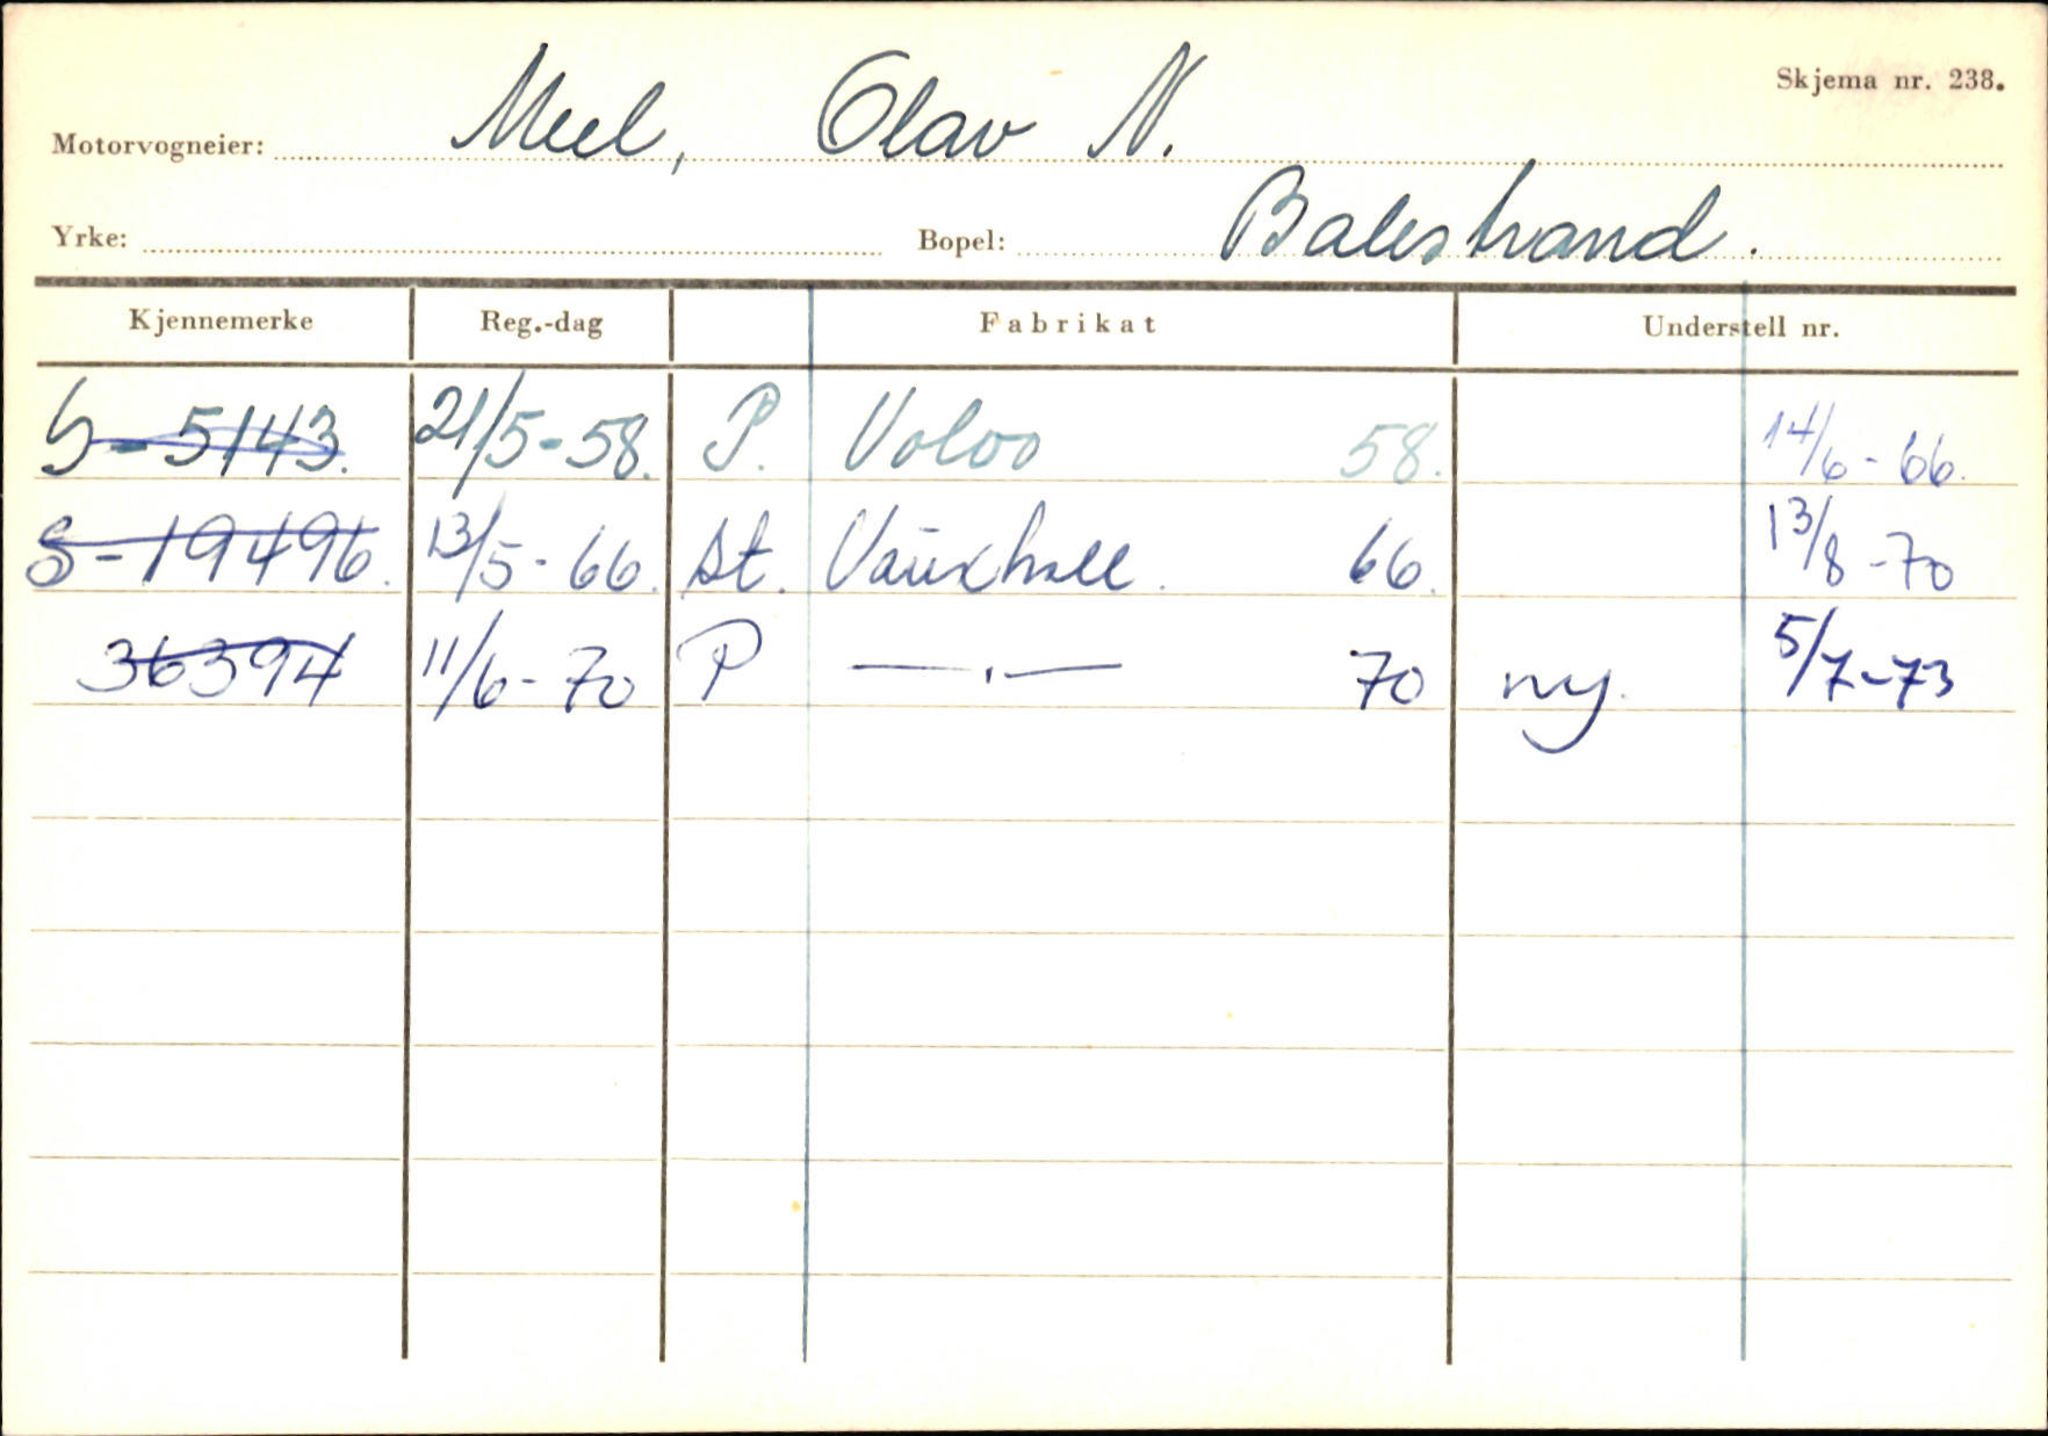 Skjema nr. 238.
Motorvogneier: Meel, Olav N.
Yrke: Bopel: Balestrand.
Kjennemerke Reg.-dag Fabrikat Understell nr.
S-5143. 21/5-58. P. Volvo 58. 14/6-66.
S-19496. 13/5-66. St. Vauxhall. 66. 13/8-70
36394 11/6-70 P —.— 70 ny. 5/7-73